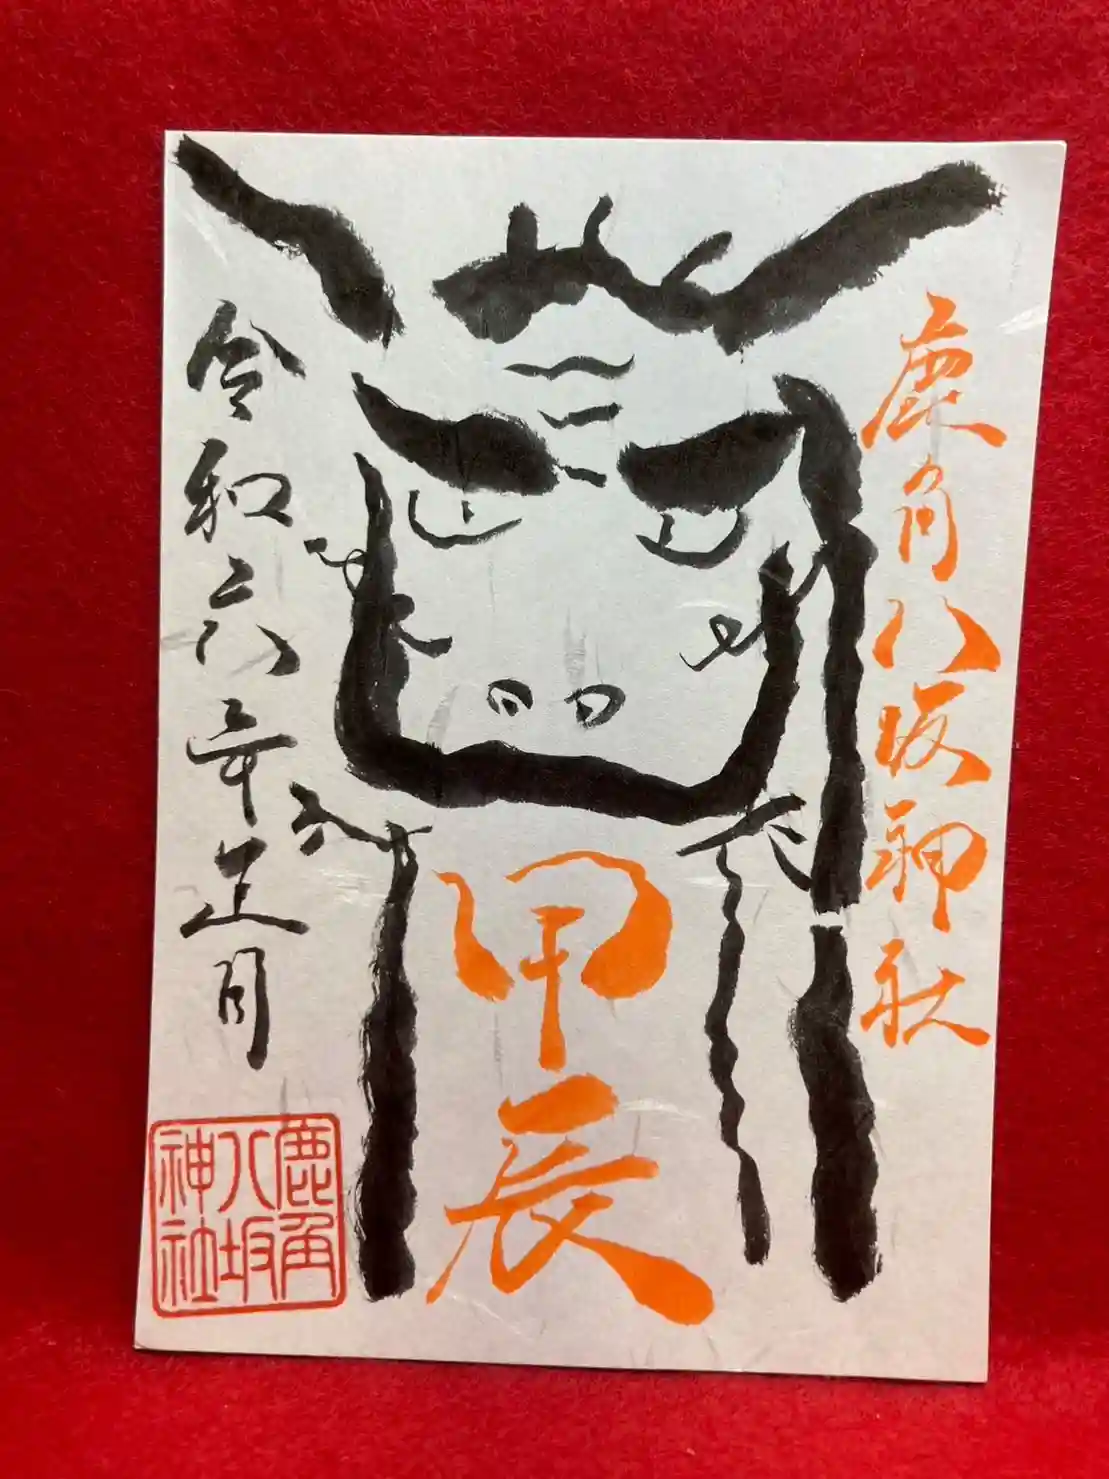 鹿角八坂神社
甲辰
令和六年正月
鹿角
八坂
神社